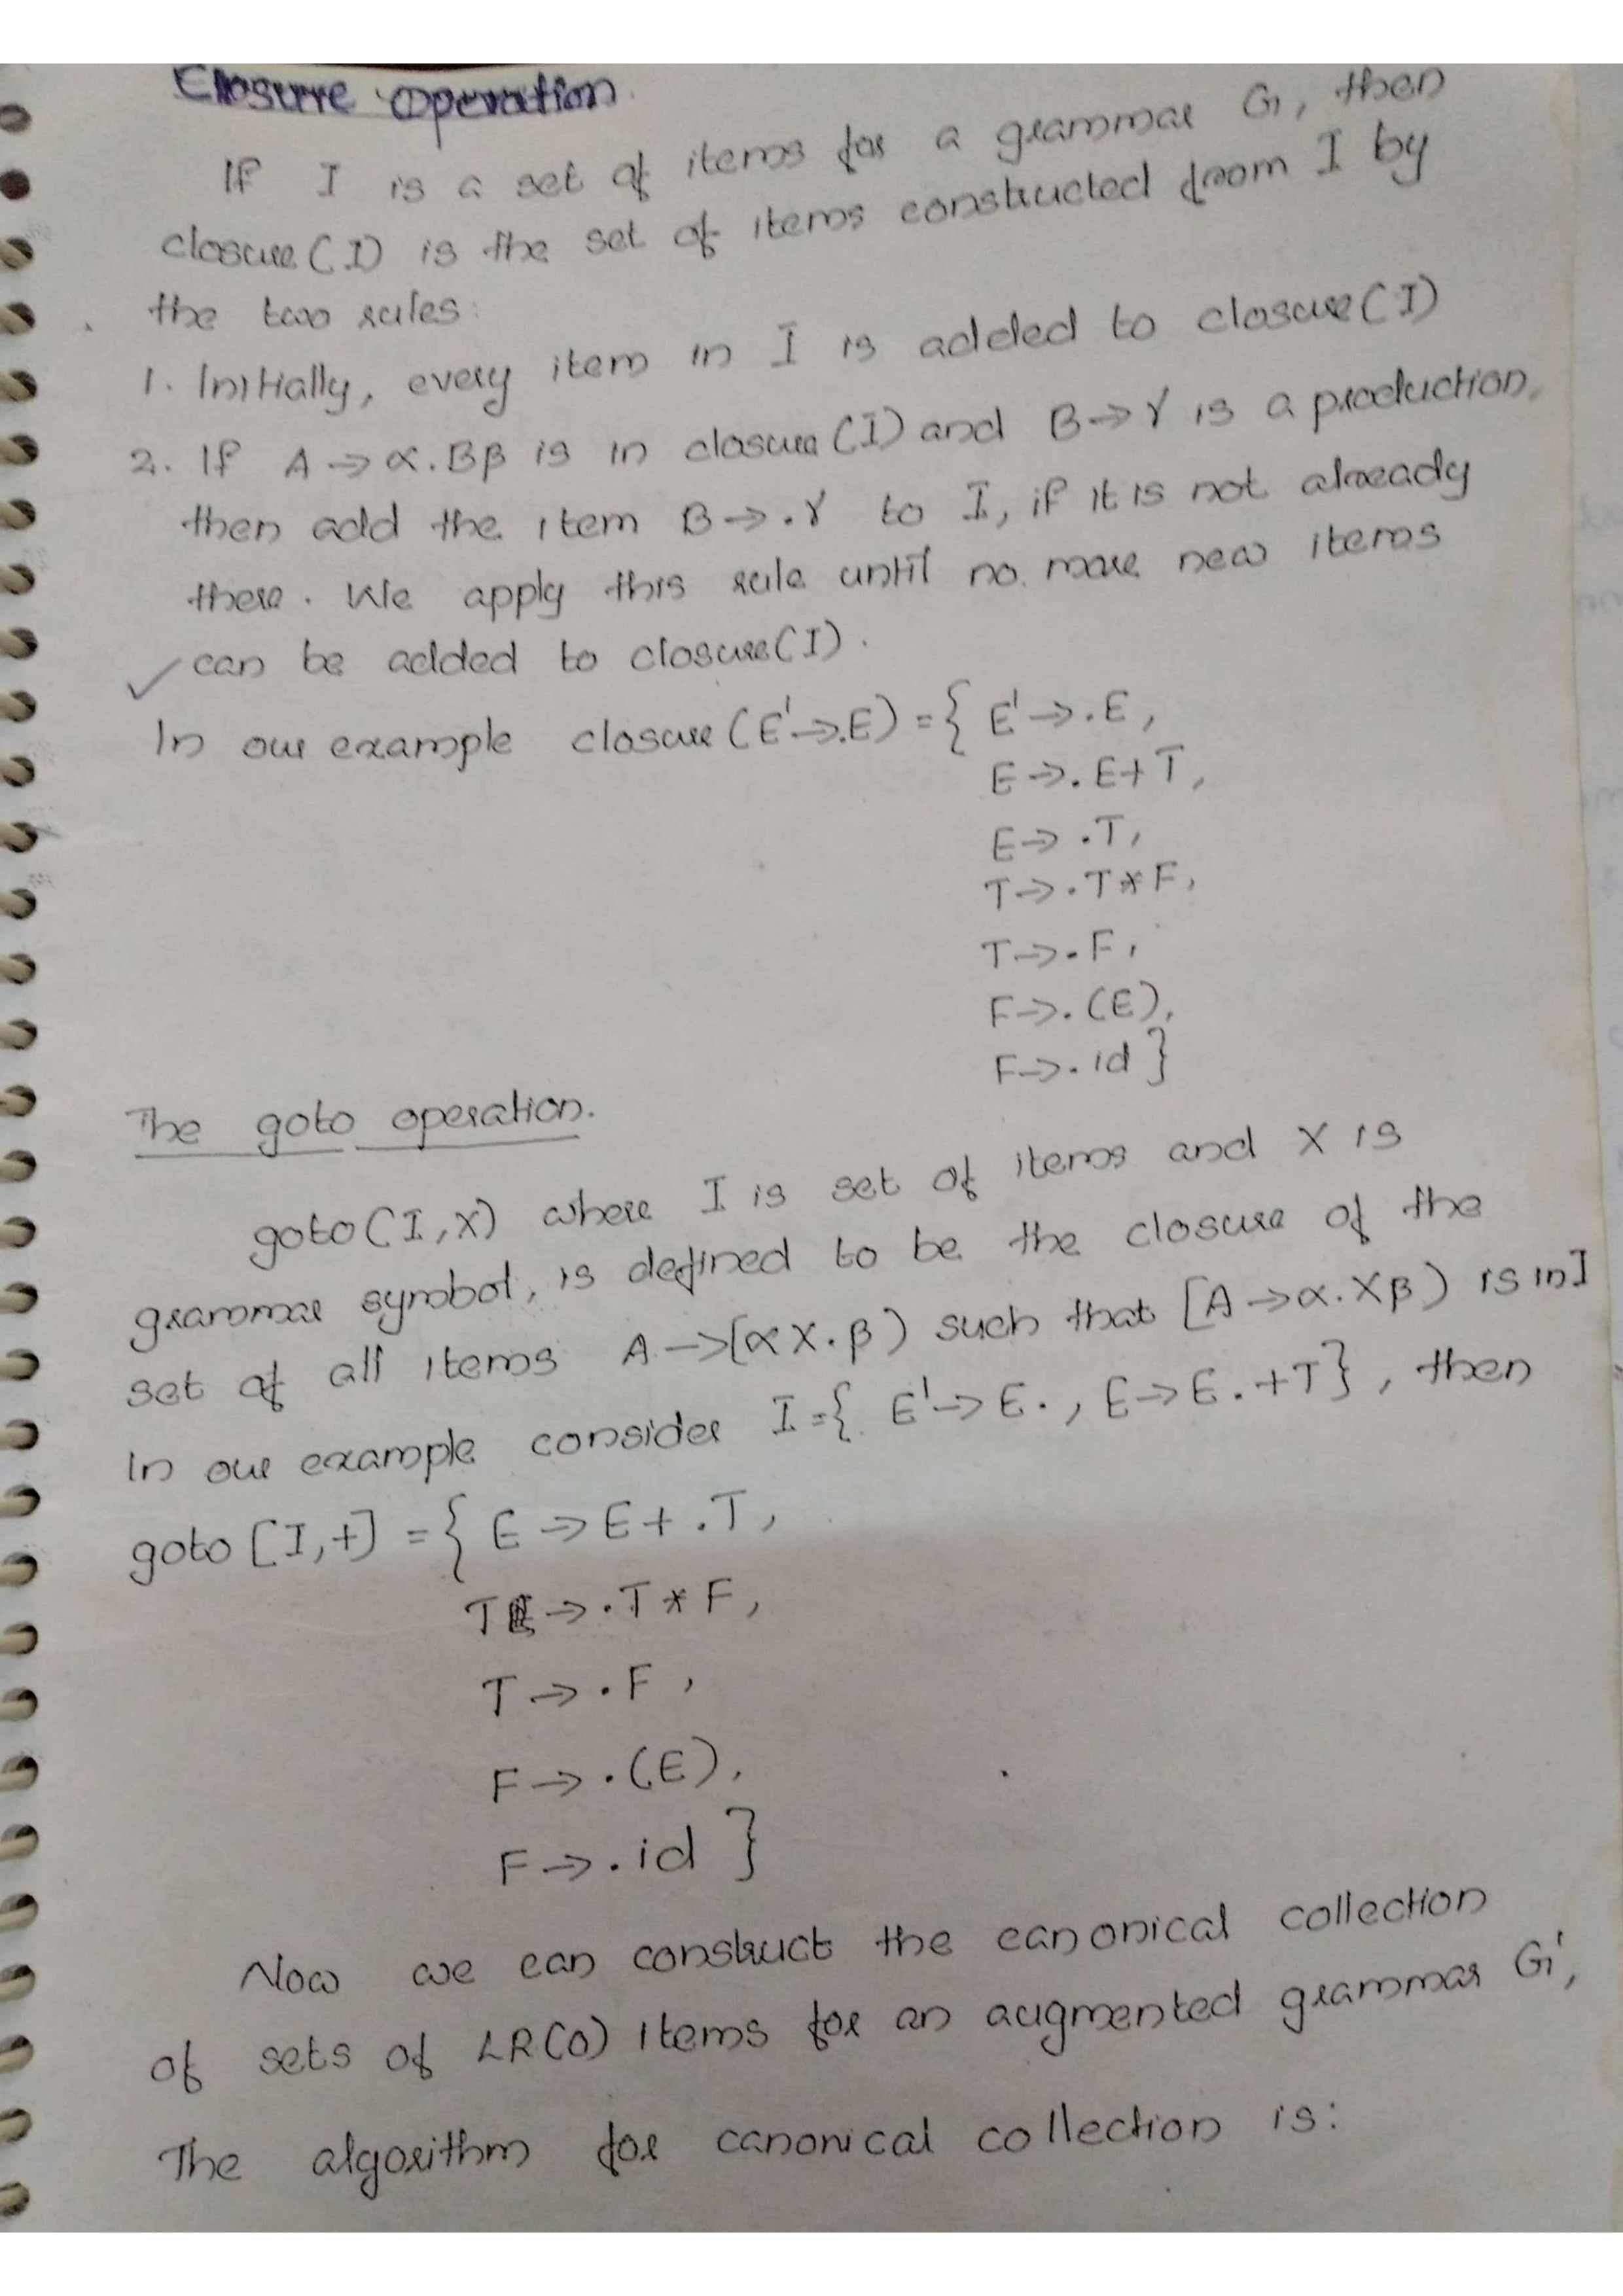 Closure operation
If I is a set of items for a grammar G, then
closure(I) is the set of items constructed from I by
the two rules:
1. Initially, every item in I is added to closure(I)
2. If A → α.Bβ is in closure(I) and B → γ is a production,
then add the item B → .γ to I, if it is not already
there. We apply this rule until no more new items
can be added to closure(I).
In our example closure(E' → .E) = { E' → .E,
E → .E+T,
E → .T,
T → .T*F,
T → .F,
F → .(E),
F → .id }
The goto operation.
goto(I,X) where I is set of items and X is
grammar symbol, is defined to be the closure of the
set of all items A → [αX.β) such that [A → α.Xβ) is in I
In our example consider I = { E' → E. , E → E.+T}, then
goto [I,+] = { E → E+.T,
T → .T*F,
T → .F,
F → .(E),
F → .id }
Now we can construct the canonical collection
of sets of LR(0) items for an augmented grammar G',
The algorithm for canonical collection is: